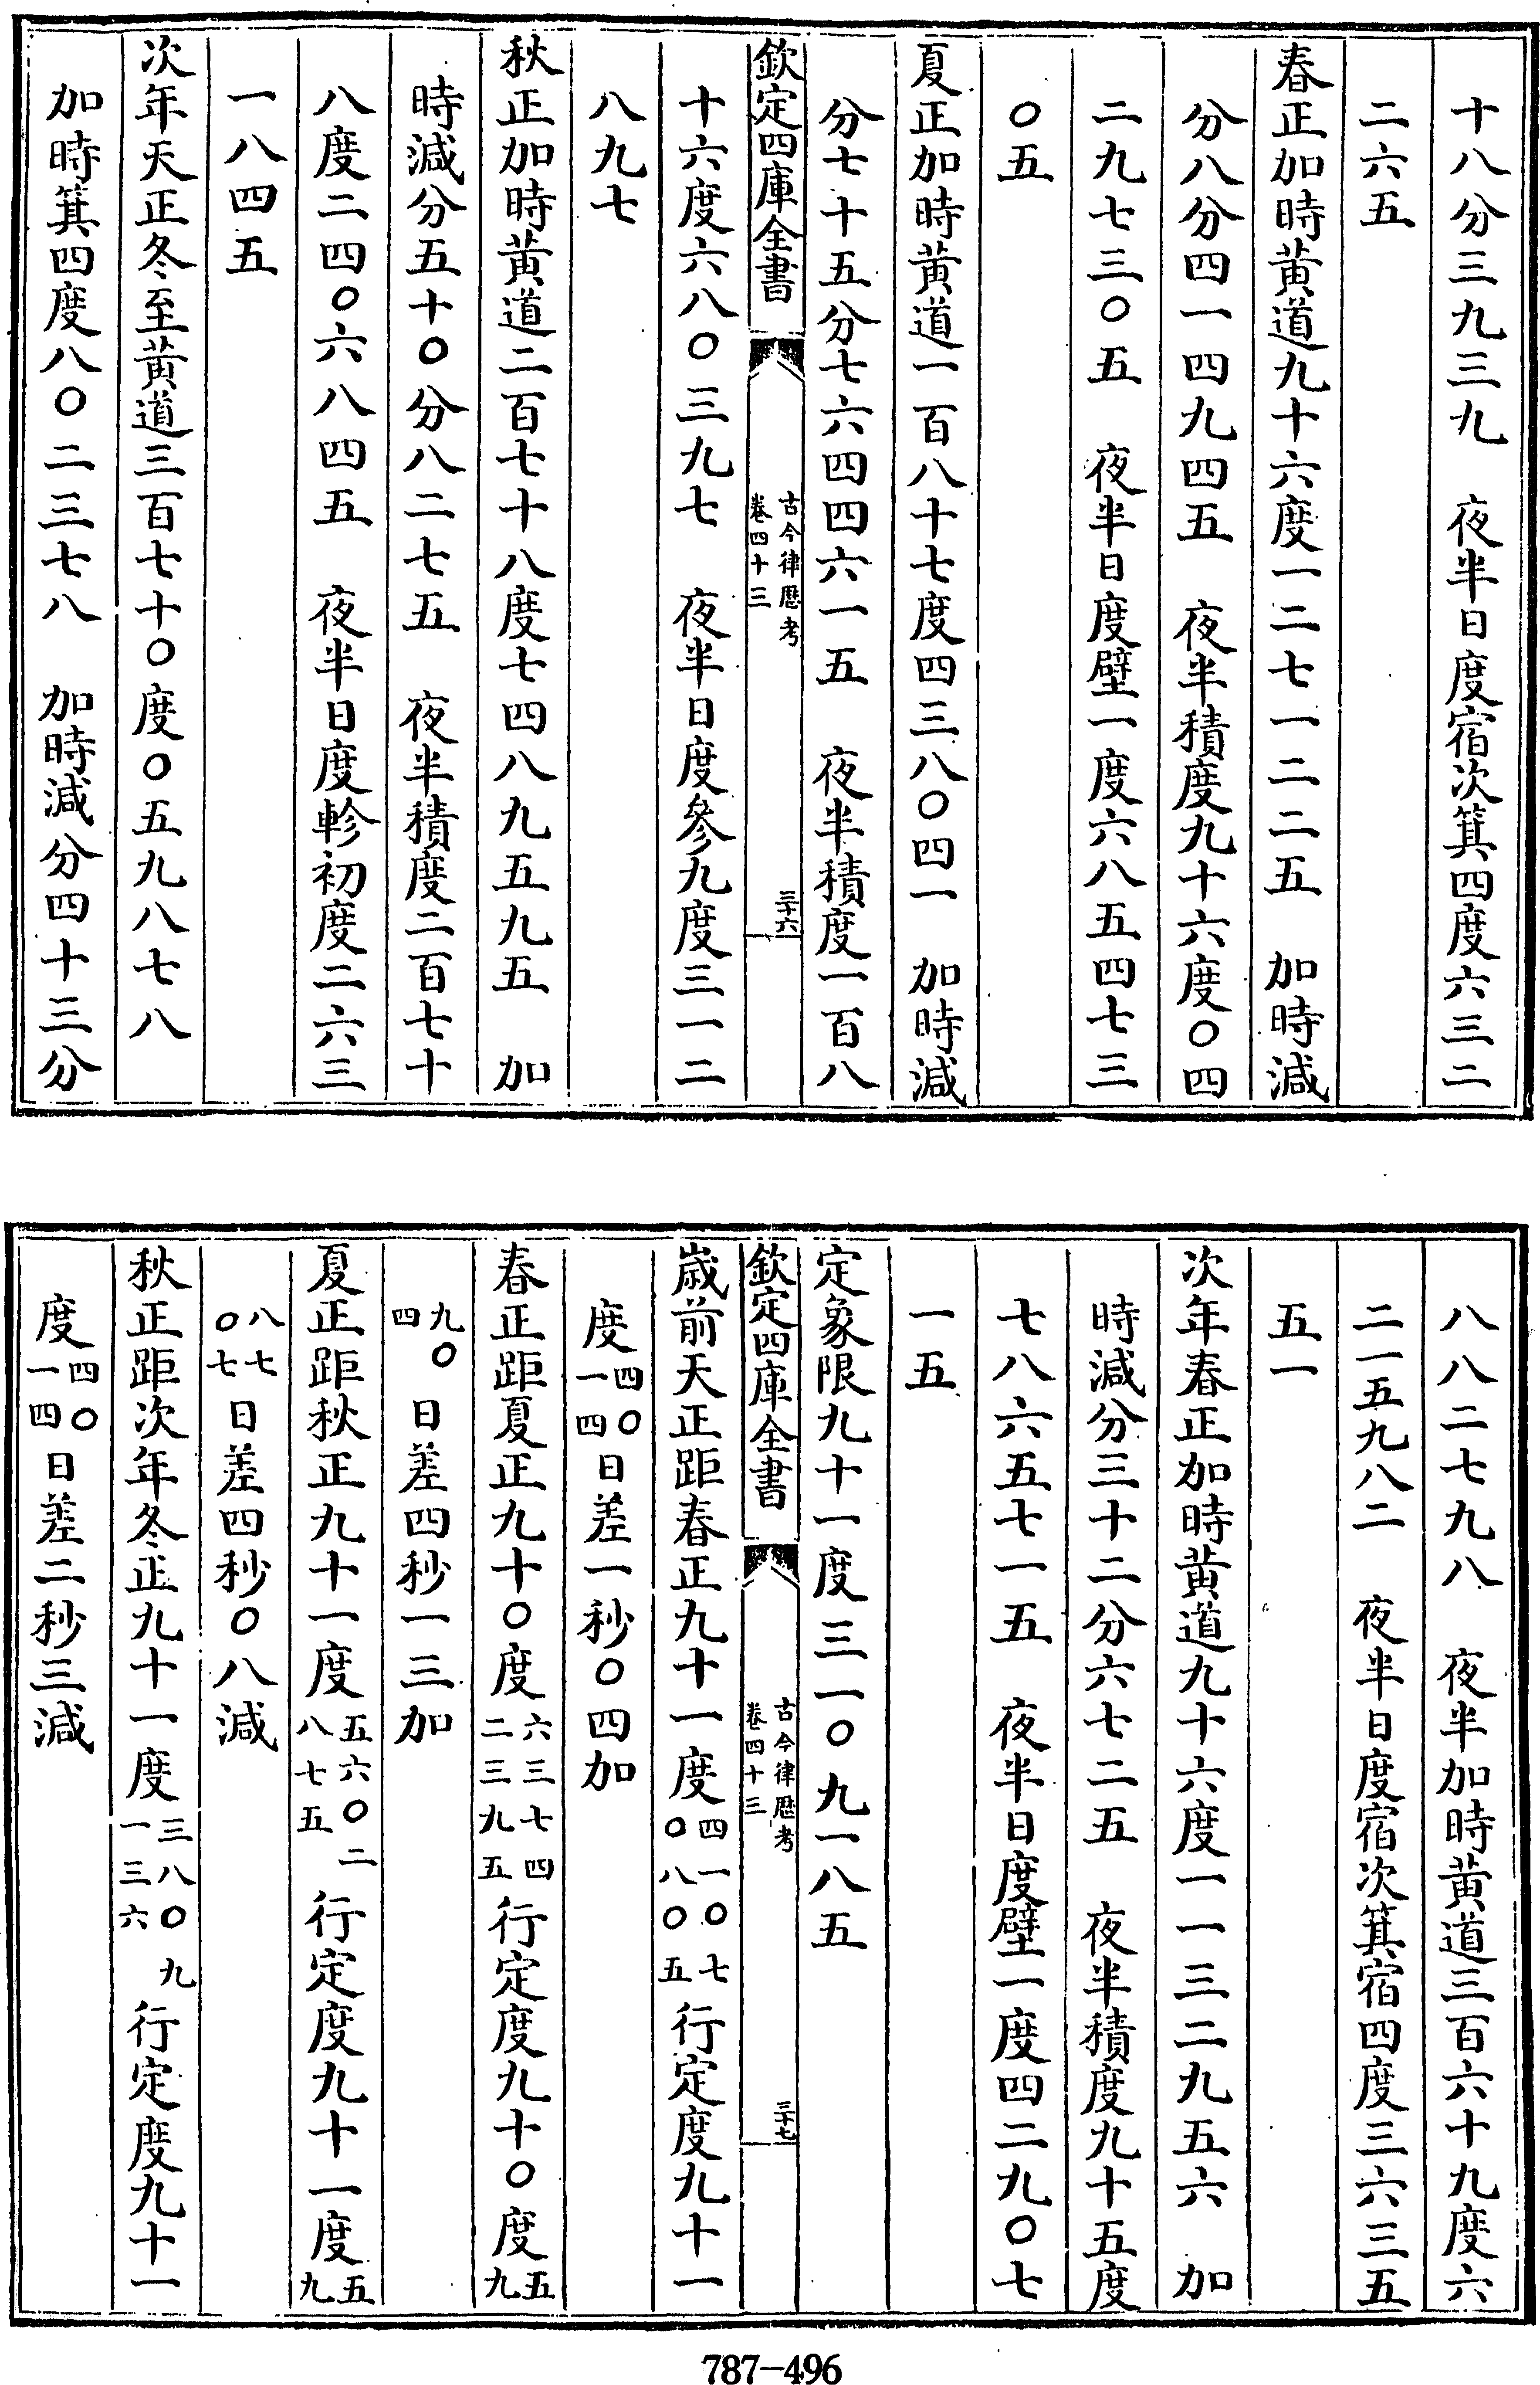 十八分三九三九　夜半日度宿次箕四度六三二
二六五
春正加時黃道九十六度一二七一二二五　加時減
分八分四一四九四五　夜半積度九十六度〇四
二九七三〇五　夜半日度壁一度六八五四七三
〇五
夏正加時黃道一百八十七度四三八〇四一　加時減
分七十五分七六四四六一五　夜半積度一百八
欽定四庫全書
古今律厯考
卷四十三
三十六
十六度六八〇三九七　夜半日度參九度三一二
八九七
秋正加時黃道二百七十八度七四八九五九五　加
時減分五十〇分八二七五　夜半積度二百七十
八度二四〇六八四五　夜半日度軫初度二六三
一八四五
次年天正冬至黃道三百七十〇度〇五九八七八
加時箕四度八〇二三七八　加時減分四十三分
八八二七九八　夜半加時黃道三百六十九度六
二一五九八二　夜半日度宿次箕宿四度三六三五
五一
次年春正加時黃道九十六度一一三二九五六　加
時減分三十二分六七二五　夜半積度九十五度
七八六五七一五　夜半日度壁一度四二九〇七
一五
定象限九十一度三一〇九一八五
欽定四庫全書
古今律厯考
卷四十三
三十七
歲前天正距春正九十一度四一〇七〇八〇五行定度九十一
度四〇一四日差一秒〇四加
春正距夏正九十〇度六三七四二三九五行定度九十〇度五九
九〇四日差四秒一三加
夏正距秋正九十一度五六〇二八七五行定度九十一度五九
八七〇七日差四秒〇八減
秋正距次年冬正九十一度三八〇九一三六行定度九十一
度四〇一四日差二秒三減
787-496